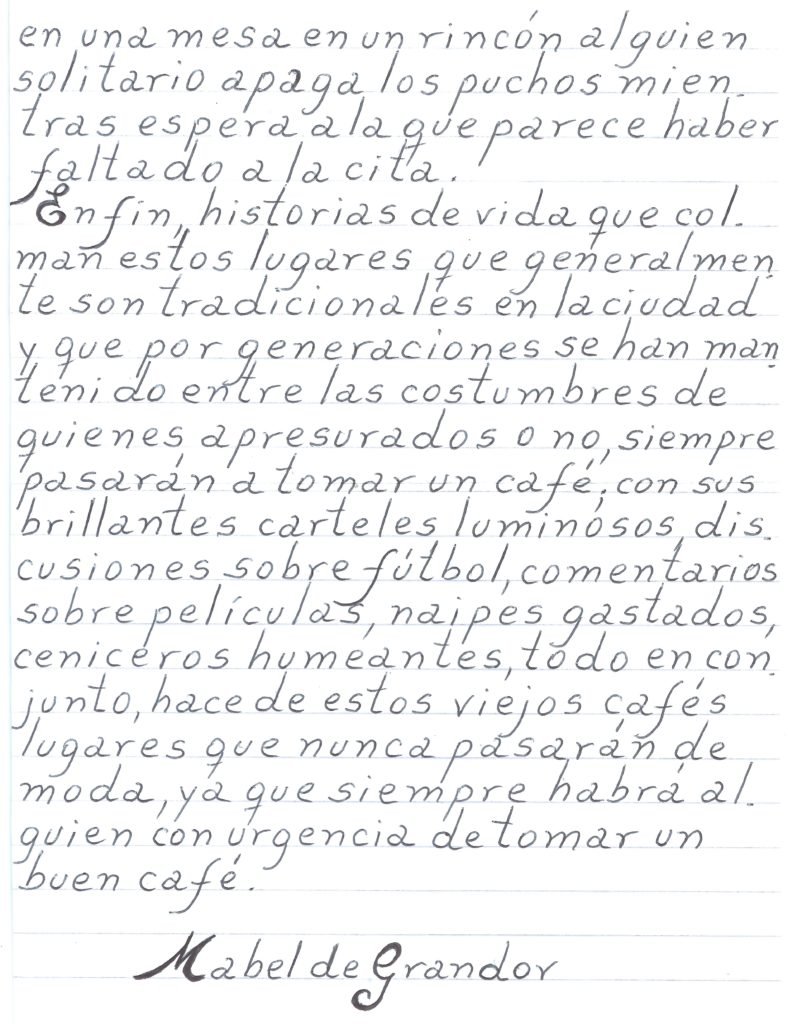 en una mesa en un rincón alguien
solitario apaga los puchos mien-
tras espera a la que parece haber
faltado a la cita.
En fin, historias de vida que col-
man estos lugares que generalmen-
te son tradicionales en la ciudad
y que por generaciones se han man-
tenido entre las costumbres de
quienes apresurados o no, siempre
pasarán a tomar un café; con sus
brillantes carteles luminosos, dis-
cusiones sobre fútbol, comentarios
sobre películas, naipes gastados,
ceniceros humeantes, todo en con-
junto, hace de estos viejos cafés
lugares que nunca pasarán de
moda, ya que siempre habrá al-
guien con urgencia de tomar un
buen café.
Mabel de Grandor